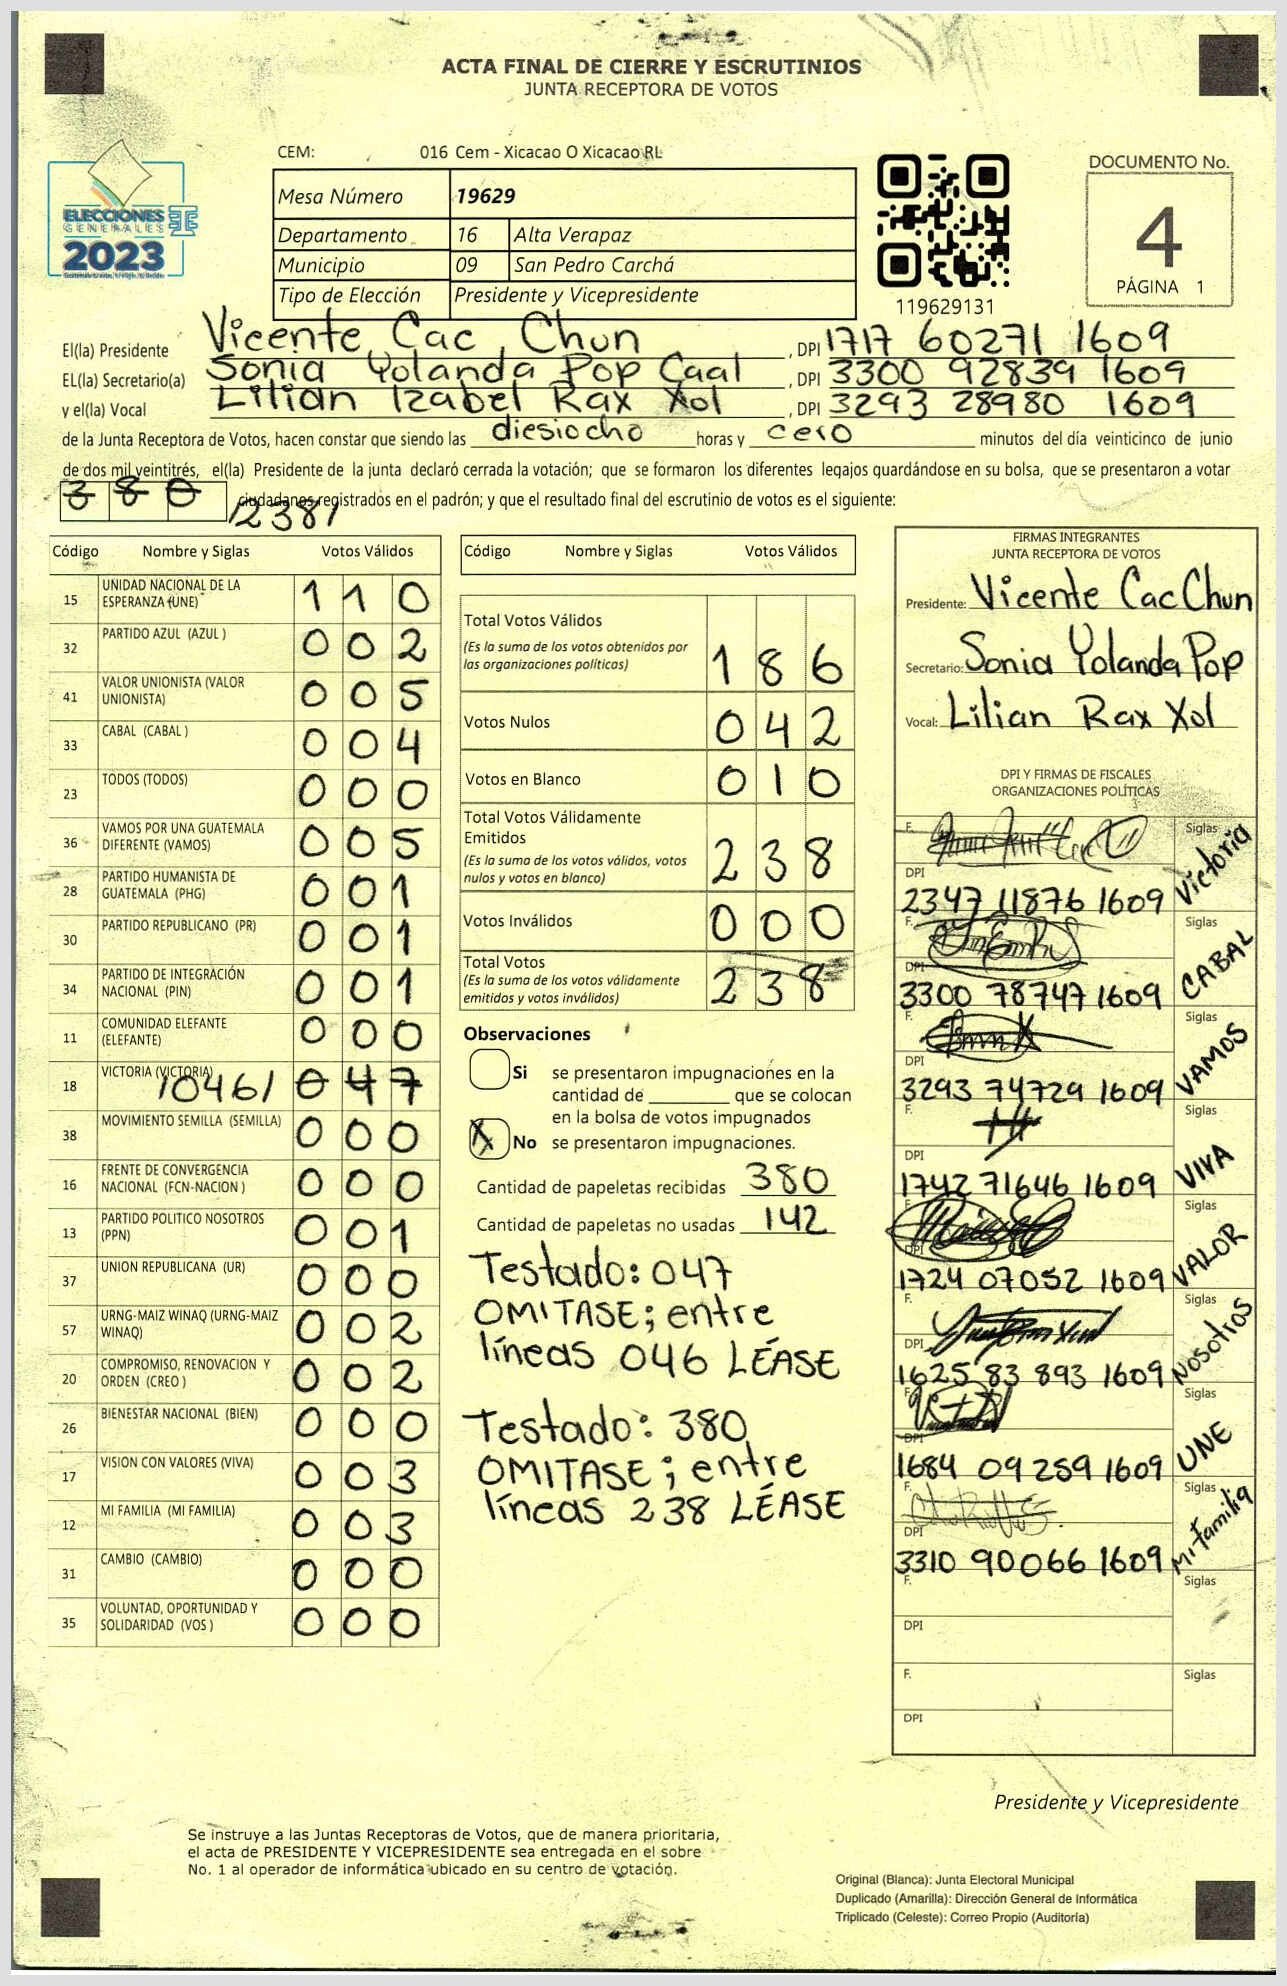 ACTA FINAL DE CIERRE Y ESCRUTINIOS
JUNTA RECEPTORA DE VOTOS
CEM: 016 Cem - Xicacao O Xicacao RL
ELECCIONES
GENERALES
2023
Mesa Número 19629
Departamento 16 Alta Verapaz
Municipio 09 San Pedro Carchá
Tipo de Elección Presidente y Vicepresidente
119629131
DOCUMENTO No.
4
PÁGINA 1
El(la) Presidente Vicente Cac Chun , DPI 1717 60271 1609
EL(la) Secretario(a) Sonia Yolanda Pop Caal , DPI 3300 92839 1609
y el(la) Vocal Lilian Izabel Rax Xol , DPI 3293 28980 1609
de la Junta Receptora de Votos, hacen constar que siendo las diesiocho horas y cero minutos del día veinticinco de junio
de dos mil veintitrés, el(la) Presidente de la junta declaró cerrada la votación; que se formaron los diferentes legajos quardándose en su bolsa, que se presentaron a votar
380 ciudadanos registrados en el padrón; y que el resultado final del escrutinio de votos es el siguiente:
/238/
Código Nombre y Siglas Votos Válidos
15 UNIDAD NACIONAL DE LA ESPERANZA (UNE) 1 1 0
32 PARTIDO AZUL (AZUL ) 0 0 2
41 VALOR UNIONISTA (VALOR UNIONISTA) 0 0 5
33 CABAL (CABAL ) 0 0 4
23 TODOS (TODOS) 0 0 0
36 VAMOS POR UNA GUATEMALA DIFERENTE (VAMOS) 0 0 5
28 PARTIDO HUMANISTA DE GUATEMALA (PHG) 0 0 1
30 PARTIDO REPUBLICANO (PR) 0 0 1
34 PARTIDO DE INTEGRACIÓN NACIONAL (PIN) 0 0 1
11 COMUNIDAD ELEFANTE (ELEFANTE) 0 0 0
18 VICTORIA (VICTORIA) /046/ 0 4 7
38 MOVIMIENTO SEMILLA (SEMILLA) 0 0 0
16 FRENTE DE CONVERGENCIA NACIONAL (FCN-NACION ) 0 0 0
13 PARTIDO POLITICO NOSOTROS (PPN) 0 0 1
37 UNION REPUBLICANA (UR) 0 0 0
57 URNG-MAIZ WINAQ (URNG-MAIZ WINAQ) 0 0 2
20 COMPROMISO, RENOVACION Y ORDEN (CREO ) 0 0 2
26 BIENESTAR NACIONAL (BIEN) 0 0 0
17 VISION CON VALORES (VIVA) 0 0 3
12 MI FAMILIA (MI FAMILIA) 0 0 3
31 CAMBIO (CAMBIO) 0 0 0
35 VOLUNTAD, OPORTUNIDAD Y SOLIDARIDAD (VOS ) 0 0 0
Código Nombre y Siglas Votos Válidos
Total Votos Válidos
(Es la suma de los votos obtenidos por
las organizaciones políticas) 1 8 6
Votos Nulos 0 4 2
Votos en Blanco 0 1 0
Total Votos Válidamente
Emitidos
(Es la suma de los votos válidos, votos
nulos y votos en blanco) 2 3 8
Votos Inválidos 0 0 0
Total Votos
(Es la suma de los votos válidamente
emitidos y votos inválidos) 2 3 8
Observaciones
Si se presentaron impugnaciones en la
cantidad de ________ que se colocan
en la bolsa de votos impugnados
X No se presentaron impugnaciones.
Cantidad de papeletas recibidas 380
Cantidad de papeletas no usadas 142
Testado: 047
OMITASE; entre
líneas 046 LÉASE
Testado: 380
OMITASE; entre
líneas 238 LÉASE
FIRMAS INTEGRANTES
JUNTA RECEPTORA DE VOTOS
Presidente: Vicente Cac Chun
Secretario: Sonia Yolanda Pop
Vocal: Lilian Rax Xol
DPI Y FIRMAS DE FISCALES
ORGANIZACIONES POLÍTICAS
F. Siglas Victoria
DPI 2347 11876 1609
F. Siglas CABAL
DPI 3300 78747 1609
F. Siglas VAMOS
DPI 3293 74729 1609
F. Siglas VIVA
DPI 1742 71646 1609
F. Siglas VALOR
DPI 1724 07052 1609
F. Siglas Nosotros
DPI 1625 83 893 1609
F. Siglas UNE
DPI 1684 09259 1609
F. Siglas Mi Familia
DPI 3310 90066 1609
F. Siglas
DPI
F. Siglas
DPI
Presidente y Vicepresidente
Se instruye a las Juntas Receptoras de Votos, que de manera prioritaria,
el acta de PRESIDENTE Y VICEPRESIDENTE sea entregada en el sobre
No. 1 al operador de informática ubicado en su centro de votación.
Original (Blanca): Junta Electoral Municipal
Duplicado (Amarilla): Dirección General de Informática
Triplicado (Celeste): Correo Propio (Auditoría)